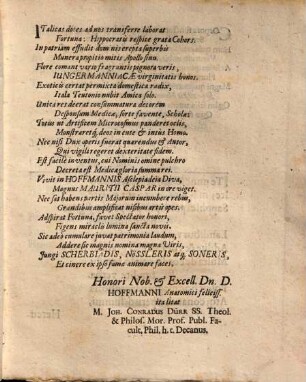 ITalicas dives ad nos transferre laborat
Fortuna: Hippocratis respice grata Cohors.
In patriam effudit dom nis erepta superbis
Munera propitio mitis Apollo sinu.
Flore comant vario frugiantis pignora veris,
JUNGERMANNIACÆ virginitatis honos.
Exoticis errat permixta domestica radix,
Itala Teutonico nubit Amica solo.
Unica res deerat consummatura decorem
Desponsam Medicæ, forte favente, Scholæ:
Totus ut Artificem Microcosmus panderet actis,
Monstraretq; deos in cute & intus Homo.
Nec nisi Dux operis fuerat quærendus & Autor,
Qui vigili regeret dexteritate fidem.
Est facile inventus, cui Nominis omine pulchro
Decreta est Medicæ gloria summa rei.
Vivit in HOFFMANNIS Asklepiadeia Diva,
Magnus MAURITII CASPAR in ore viget.
Nec sat habens partis Majorum incumbere rebus,
Grandibus amplificat nisibus artis opes.
Adspirat Fortuna, favet Spectator honori,
Figens miraclo lumina sancta novo.
Sic adhuc cumulare juvat patrimonia laudum,
Addere sic magnis nomina magna Viris,
Jungi SCHERBIADIS, NISSLERIS atq; SONERIS,
Et cinere ex ipso famæ animare faces.
Honori Nob. & Excell. Dn. D.
HOFFMANNI Anatomici feliciss.
ita litat
M. JOH. CONRADUS DÜRR SS. Theol.
& Philos. Mor. Prof. Publ. Fa-
cult. Phil. h. t. Decanus.